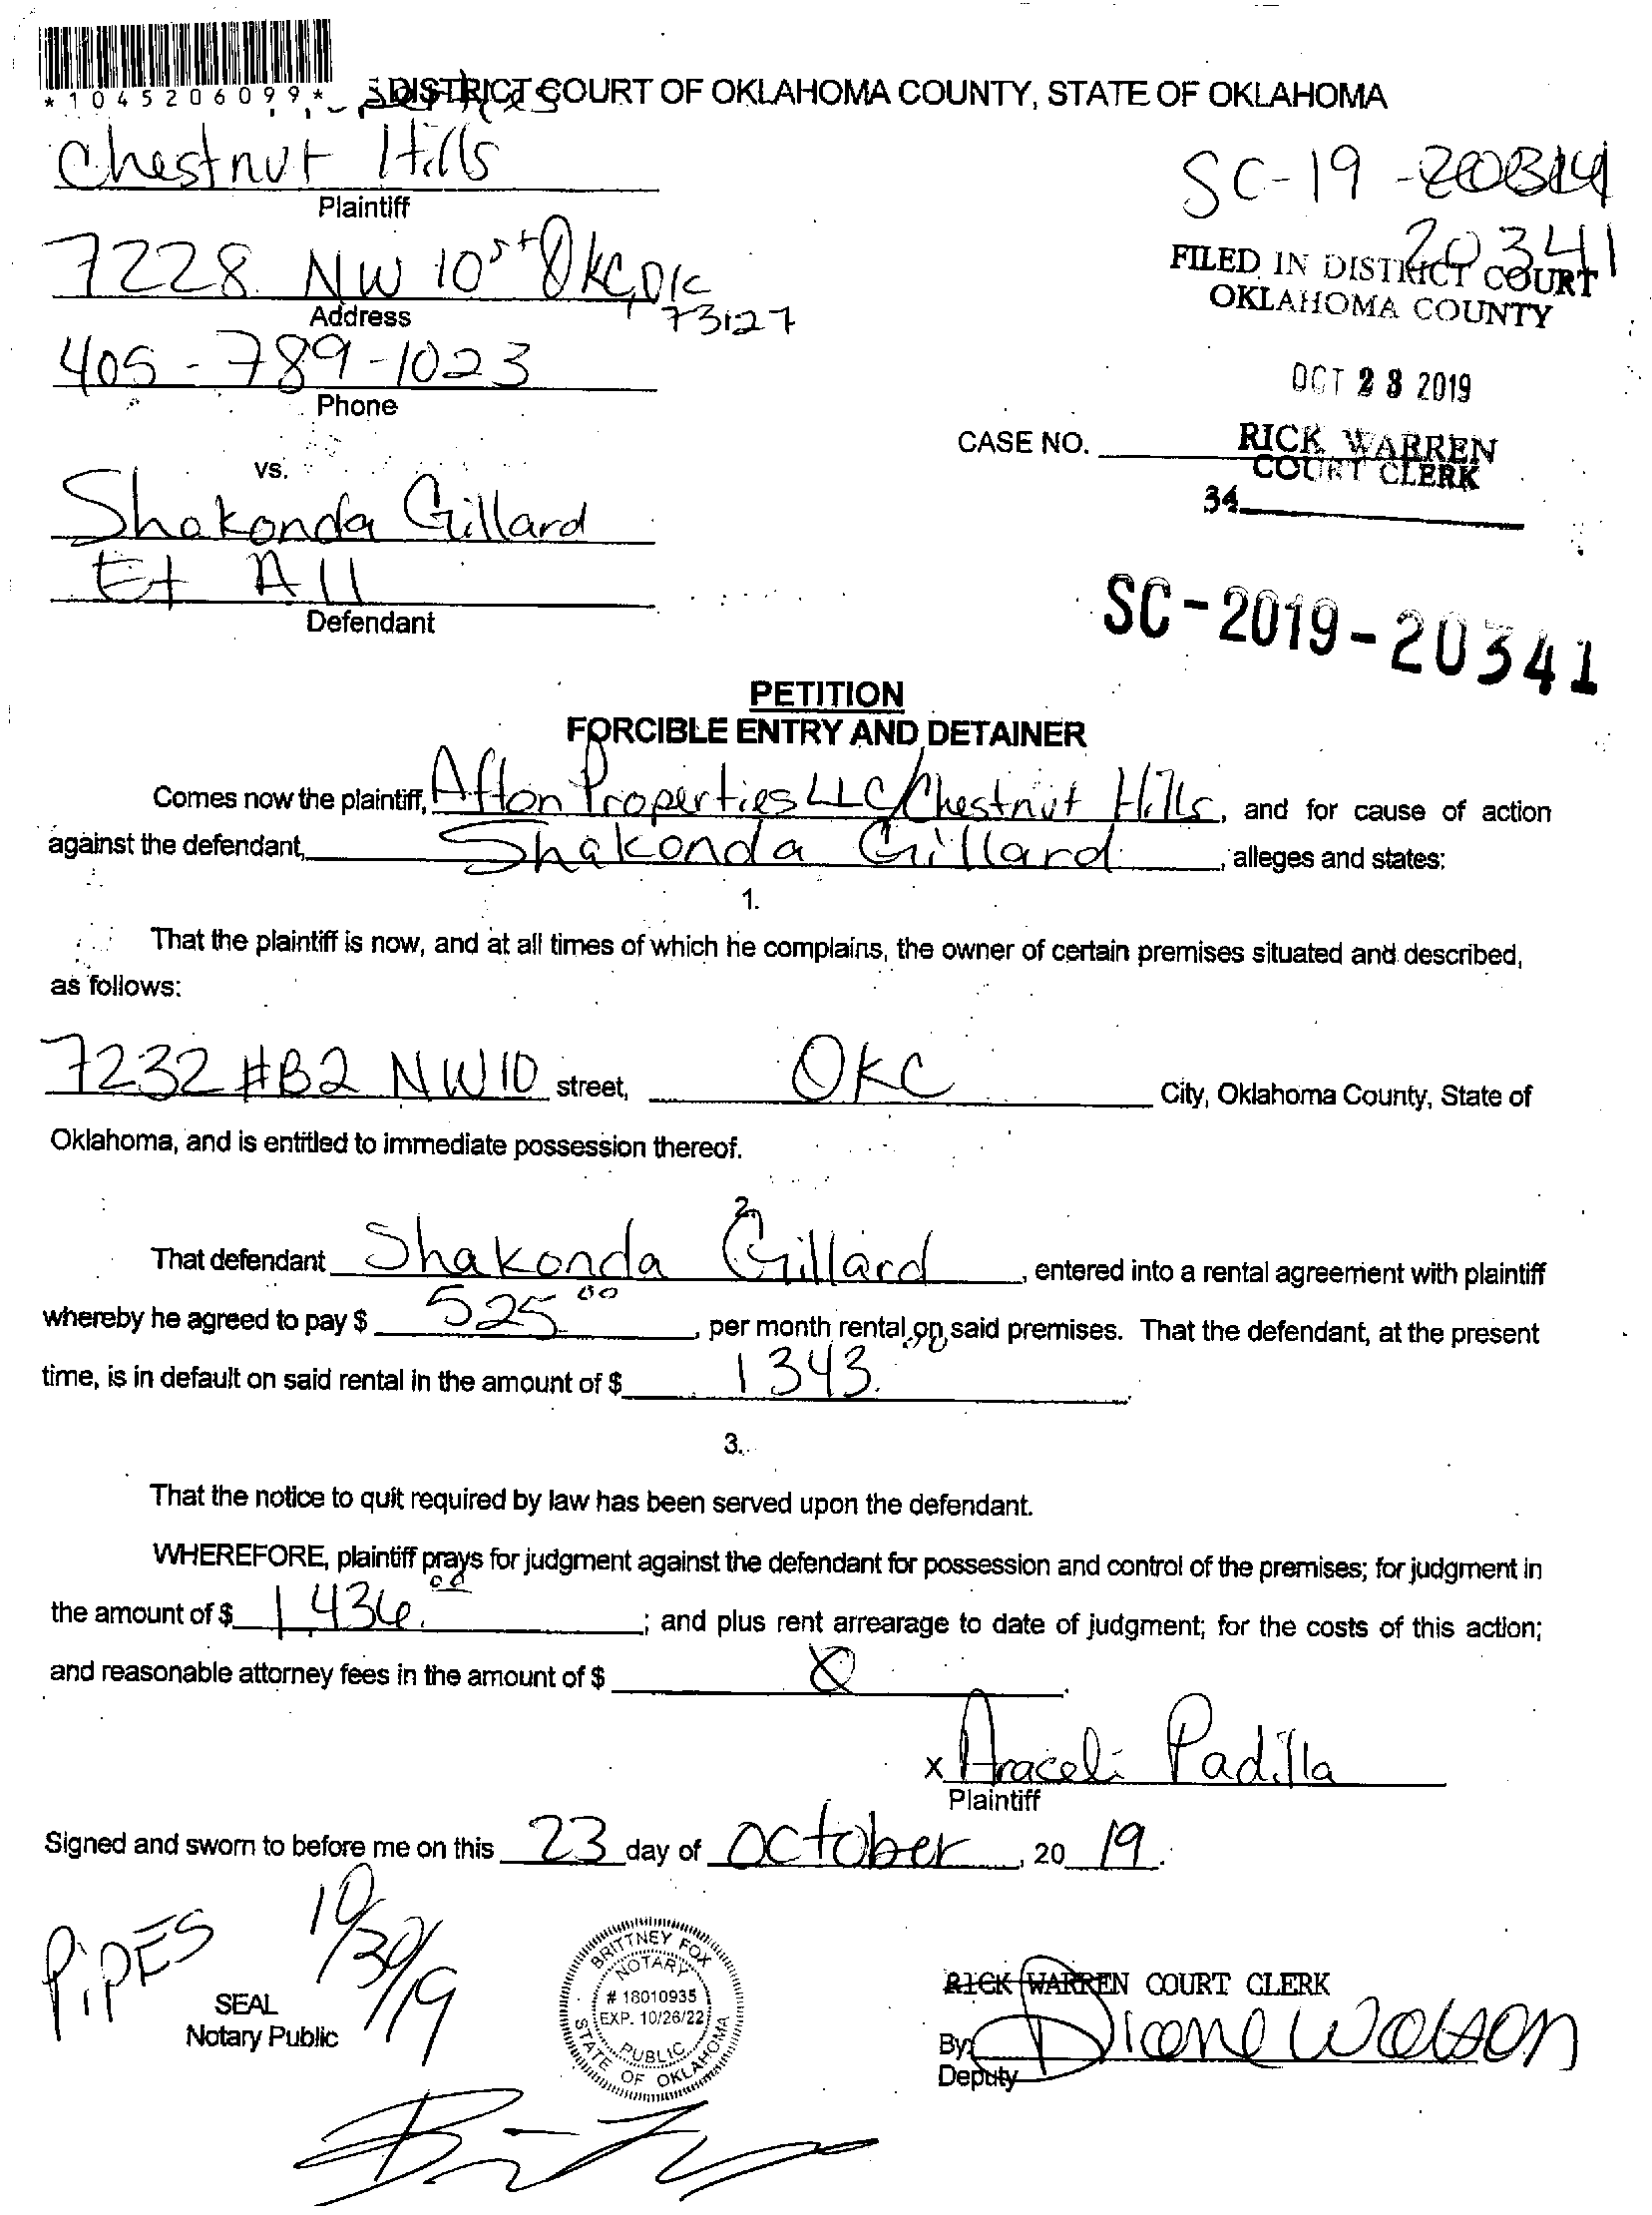 *1045206099*
DISTRICT COURT OF OKLAHOMA COUNTY, STATE OF OKLAHOMA
Chestnut Hills
Plaintiff
SC-19
20341
7228 NW 10st OKC, OK
73127
Address
FILED IN DISTRICT COURT
OKLAHOMA COUNTY
405-789-1023
Phone
OCT 23 2019
CASE NO.
RICK WARREN
COURT CLERK
34
vs.
Shakonda Gillard
Et All
Defendant
SC-2019-20341
PETITION
FORCIBLE ENTRY AND DETAINER
Comes now the plaintiff, Afton Properties LLC/Chestnut Hills, and for cause of action
against the defendant, Shakonda Gillard, alleges and states:
1.
That the plaintiff is now, and at all times of which he complains, the owner of certain premises situated and described,
as follows:
7232 #B2 NW10 street, OKC City, Oklahoma County, State of
Oklahoma, and is entitled to immediate possession thereof.
2.
That defendant Shakonda Gillard, entered into a rental agreement with plaintiff
whereby he agreed to pay $ 525 00, per month rental on said premises. That the defendant, at the present
time, is in default on said rental in the amount of $ 1343.00.
3.
That the notice to quit required by law has been served upon the defendant.
WHEREFORE, plaintiff prays for judgment against the defendant for possession and control of the premises; for judgment in
the amount of $ 1,436.00; and plus rent arrearage to date of judgment; for the costs of this action;
and reasonable attorney fees in the amount of $
x Araceli Padilla
Plaintiff
Signed and sworn to before me on this 23 day of October, 20 19.
PiPES 10/30/19
SEAL
Notary Public
BRITTNEY FOX
NOTARY
# 18010935
EXP. 10/26/22
PUBLIC
STATE OF OKLAHOMA
RICK WARREN COURT CLERK
By: Diane Watson
Deputy